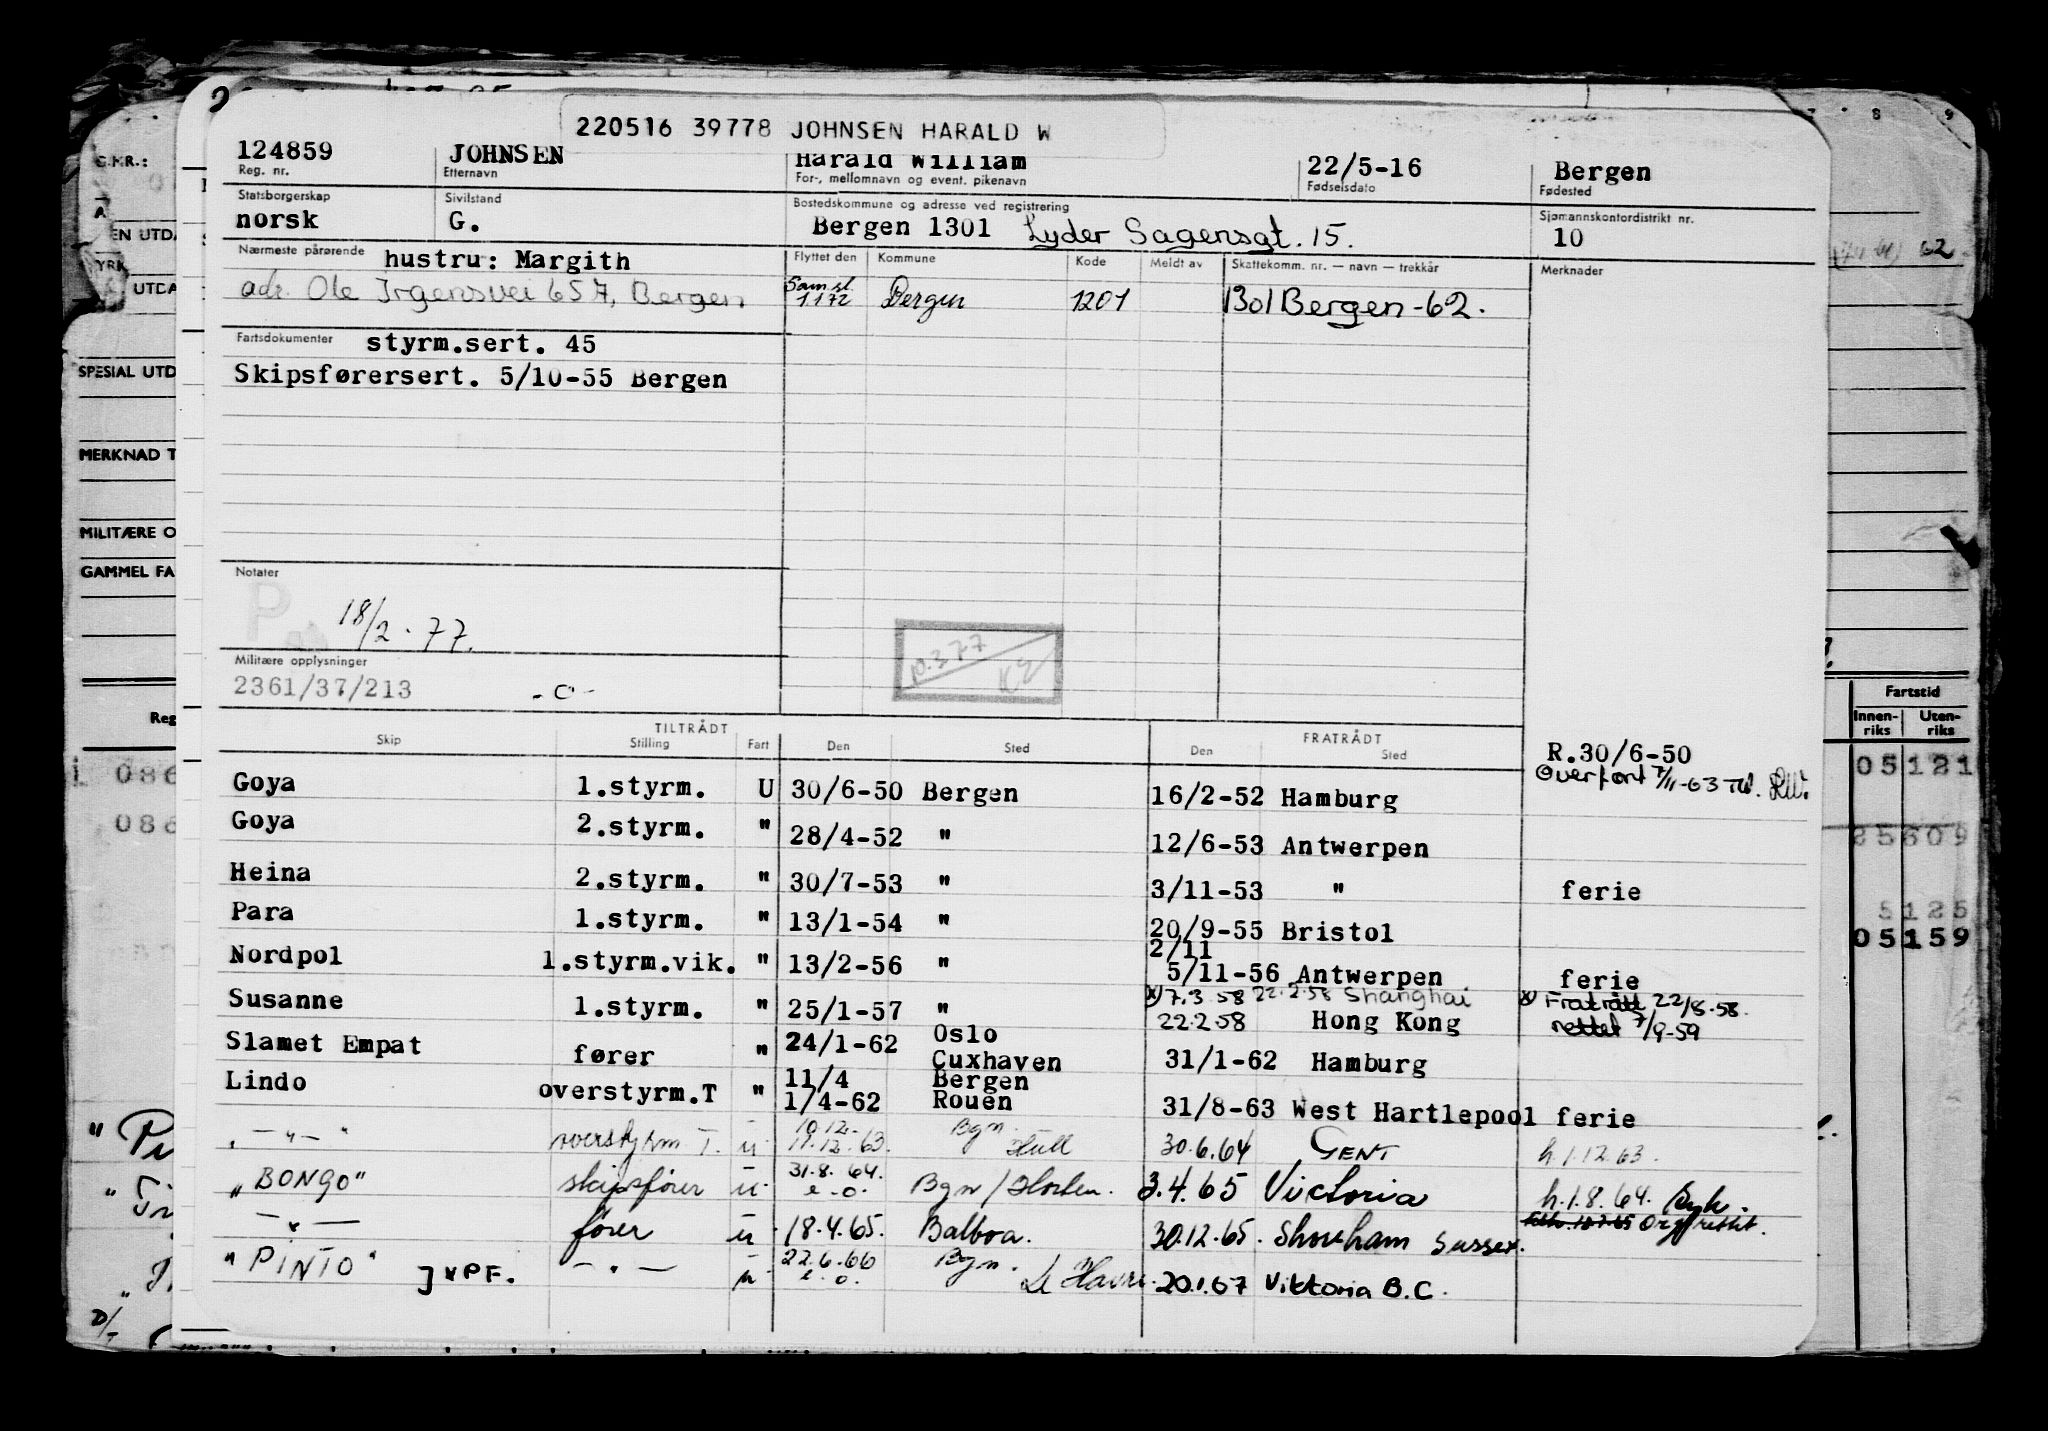 220516 39778 JOHNSEN HARALD W
124859 JOHNSEN Harald William 22/5-16 Bergen
Reg. nr. Etternavn For-, mellomnavn og event. pikenavn Fødselsdato Fødested
Statsborgerskap Sivilstand Bostedskommune og adresse ved registrering Sjømannskontordistrikt nr.
norsk G. Bergen 1301 Lyder Sagensgt. 15. 10
Nærmeste pårørende hustru: Margith Flyttet den Kommune Kode Meldt av Skattekomm. nr. — navn — trekkår Merknader
adr. Ole Irgensvei 65 A, Bergen Samsl. 1172 Bergen 1201 1301 Bergen -62.
Fartsdokumenter styrm.sert. 45
Skipsførersert. 5/10-55 Bergen
Notater
P
18/2. 77.
Militære opplysninger
2361/37/213 - o -
TILTRÅDT FRATRÅDT
Skip Stilling Fart Den Sted Den Sted
R.30/6-50
Overført 7/11-63
Goya 1.styrm. U 30/6-50 Bergen 16/2-52 Hamburg
Goya 2.styrm. " 28/4-52 " 12/6-53 Antwerpen
Heina 2.styrm. " 30/7-53 " 3/11-53 " ferie
Para 1.styrm. " 13/1-54 " 20/9-55 Bristol
Nordpol 1.styrm.vik. " 13/2-56 " 2/11 5/11-56 Antwerpen ferie
x) 7.3 58 22.2.58 Shanghai x) Fratrått 22/8-58.
Susanne 1.styrm. " 25/1-57 " 22.2.58 Hong Kong rettet 7/9-59
Slamet Empat fører " 24/1-62 Oslo Cuxhaven 31/1-62 Hamburg
Lindo overstyrm.T " 11/4 Bergen
1/4-62 Rouen 31/8-63 West Hartlepool ferie
" — " — " overstyrm T. u 10.12. 11.12.63. Bgn. Hull 30.6.64 GENT h.1.12.63.
"BONGO" skipsfører u 31.8.64. e.o. Bgn / Horten. 3.4.65 Victoria h.1.8.64.
— " — fører u 18.4.65. Balboa. 30.12.65. Shoreham Sussex.
"PINTO" ] x PF. — " — u 22.6.66 e.o. Bgn. Le Havre. 20.1.67 Viktoria B.C.
EN UTDA
YRK
UTDA
SPESIAL UTD
MERKNAD T
MILITÆRE O
GAMMEL FA
Reg
086
086
8 9
62
Fartstid
Innenriks Utenriks
05121
25609
5125
05159